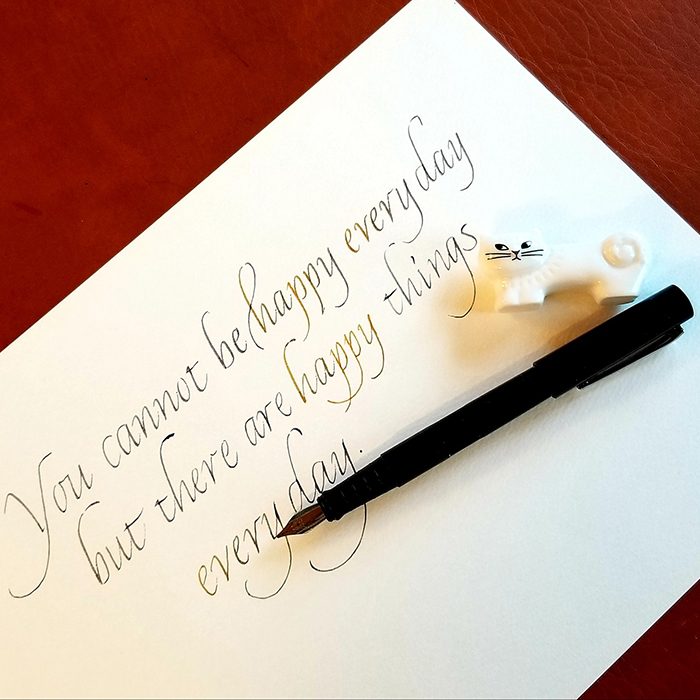 You cannot be happy everyday
but there are happy things
everyday.